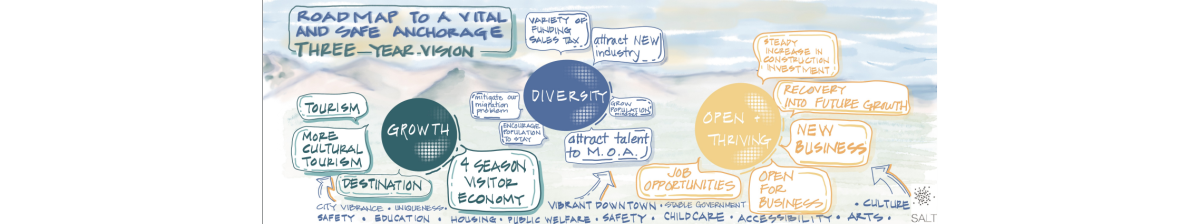 ROADMAP TO A VITAL
AND SAFE ANCHORAGE
THREE-YEAR-VISION
TOURISM
MORE
CULTURAL
TOURISM
GROWTH
DESTINATION
4 SEASON
VISITOR
ECONOMY
VARIETY OF
FUNDING
SALES TAX
attract NEW
industry
DIVERSITY
mitigate our
migration
problem
ENCOURAGE
POPULATION
TO STAY
GROW
POPULATION
attract talent
to M.O.A.
STEADY
INCREASE IN
CONSTRUCTION
INVESTMENT
RECOVERY
INTO FUTURE GROWTH
OPEN +
THRIVING
NEW
BUSINESS
JOB
OPPORTUNITIES
OPEN
FOR
BUSINESS
CITY VIBRANCE • UNIQUENESS •
VIBRANT DOWNTOWN • STABLE GOVERNMENT
• CULTURE
SAFETY • EDUCATION • HOUSING • PUBLIC WELFARE • SAFETY • CHILDCARE • ACCESSIBILITY • ARTS •
SALT